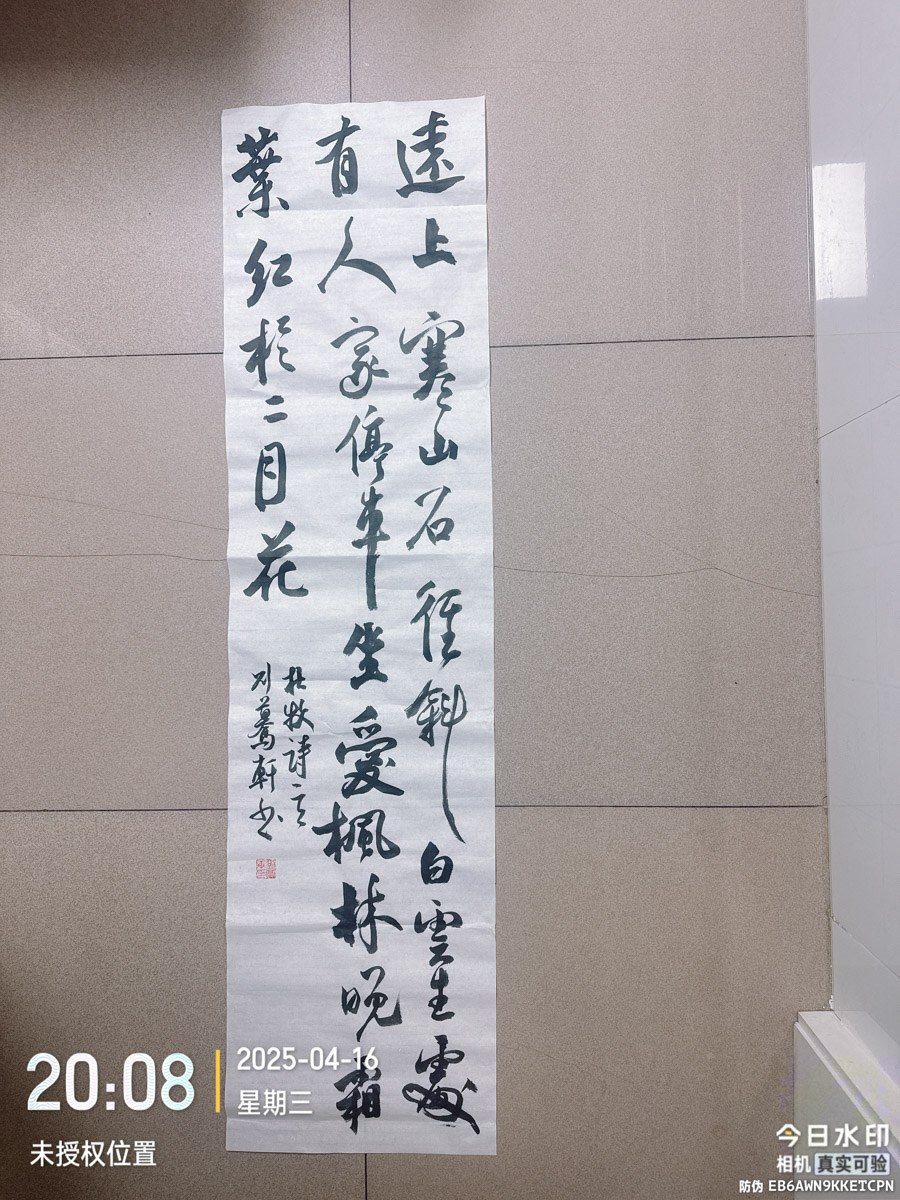 遠上寒山石徑斜白雲生處
有人家停車坐愛楓林晚霜
葉紅於二月花
杜牧詩一首
刘驀軒书
20:08
2025-04-16
星期三
未授权位置
今日水印
相机 真实可验
防伪 EB6AWN9KKETCPN